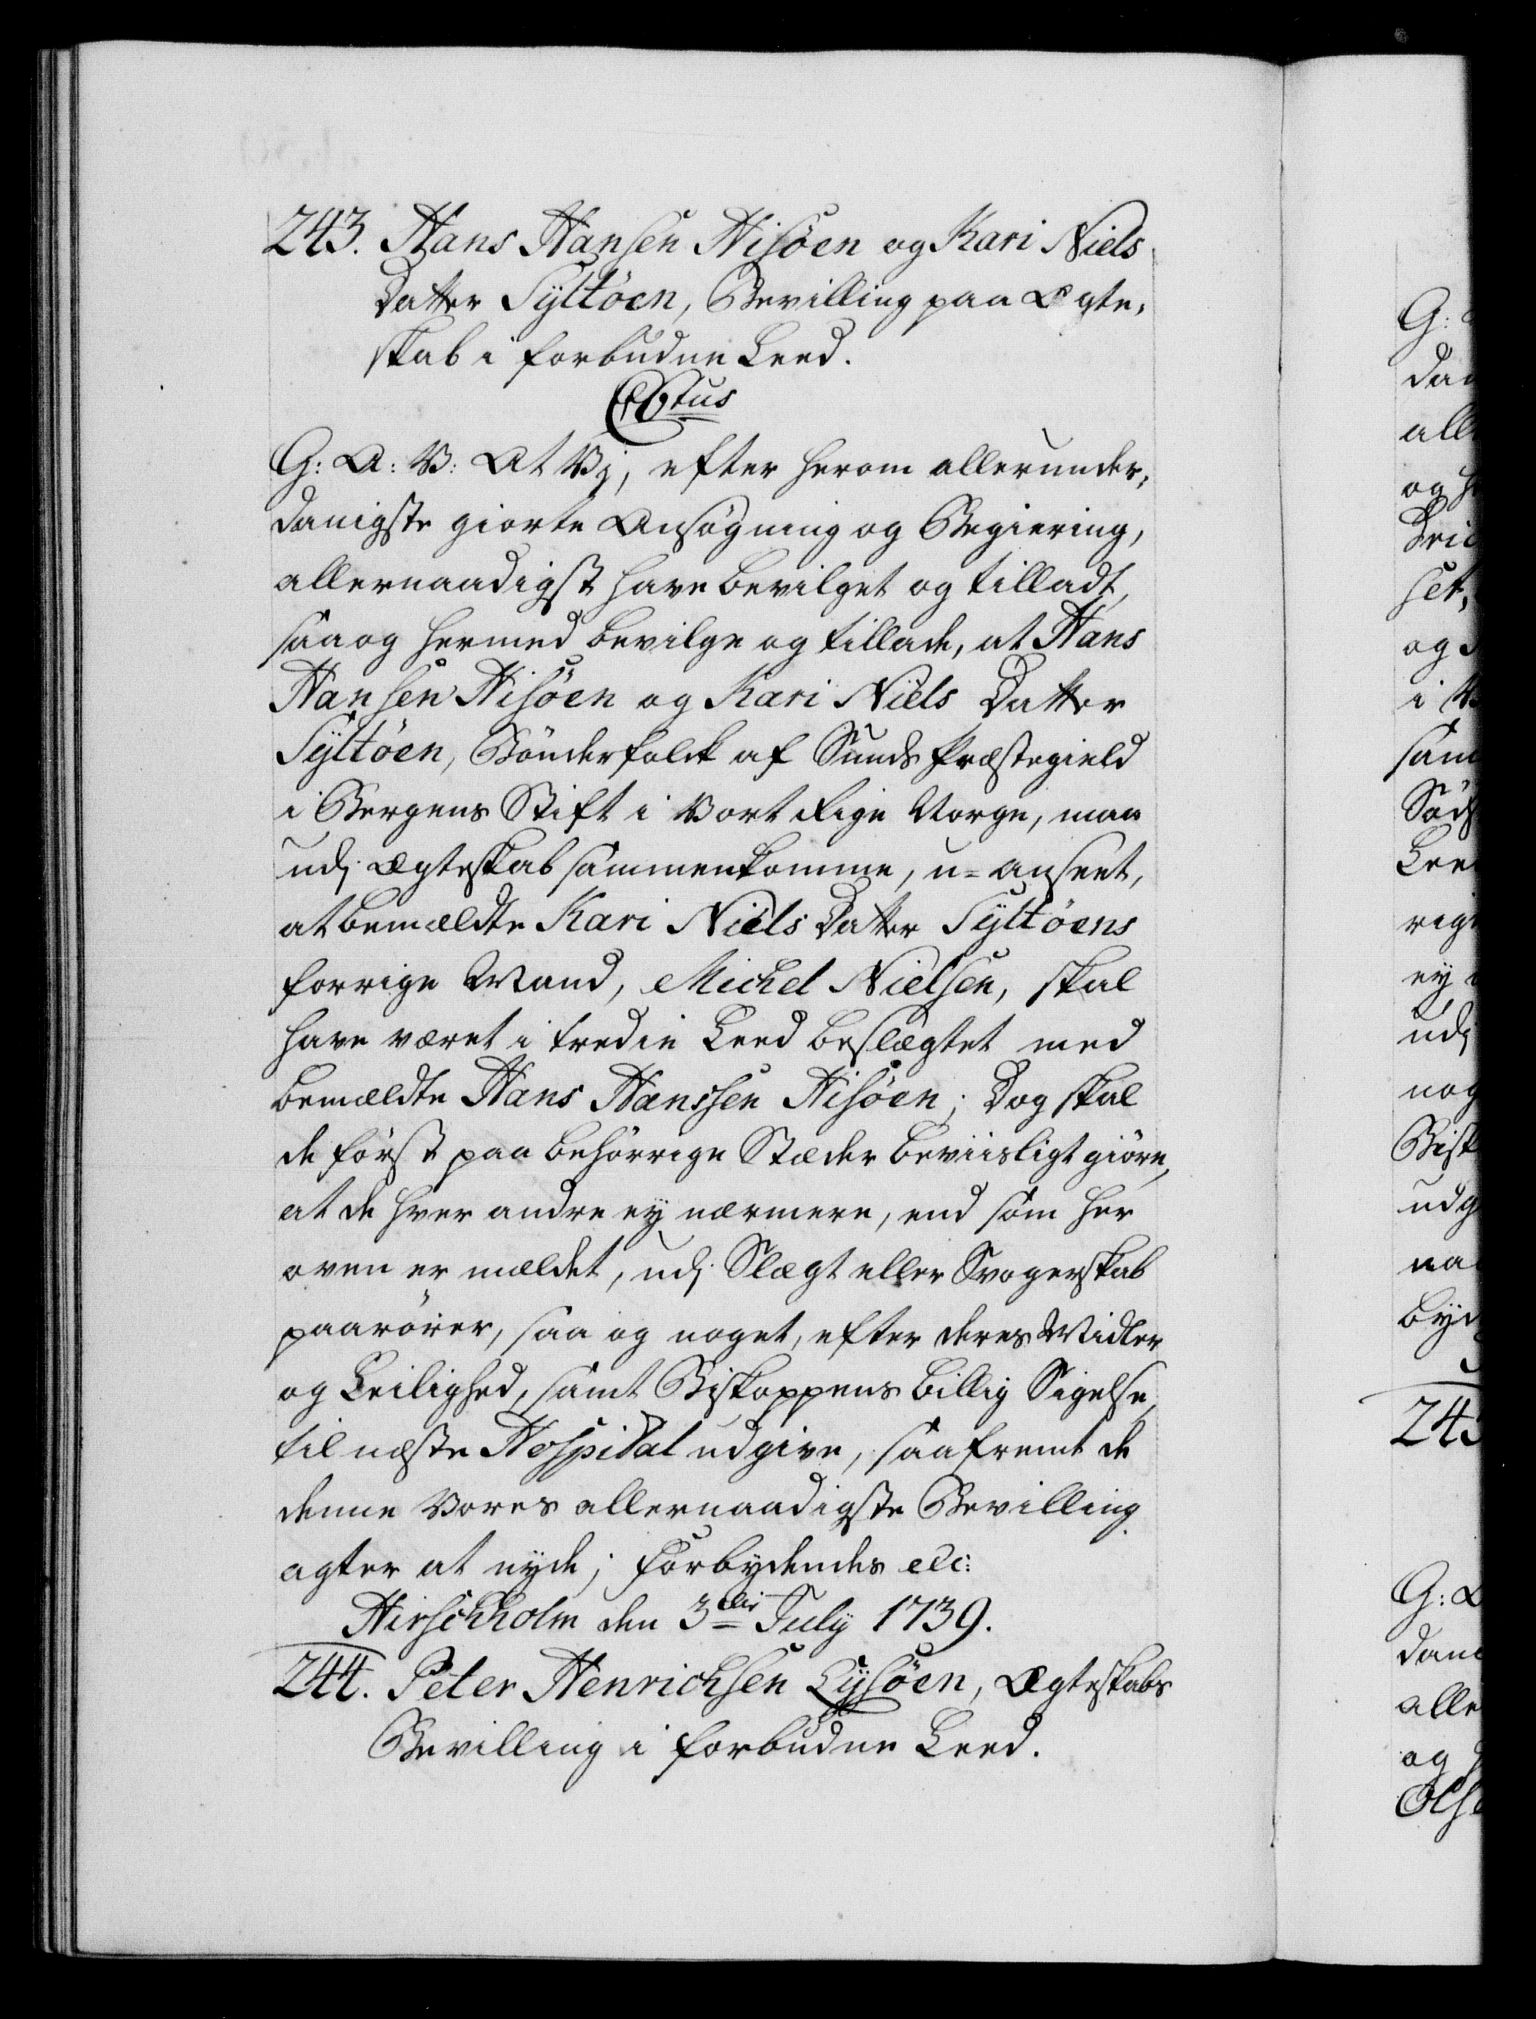 243. Hans Hansen Hisöen og Kari Niels
Datter Syltöen, Bevilling paa Ægte,
skab i forbudne Leed.
C6tus
G: A: V: At Vj, efter herom allerunder,
danigste giorte Ansøgning og Begiering,
allernaadigst have bevilget og tilladt,
saa og hermed bevilge og tillade, at Hans
Hansen Hisöen og Kari Niels Datter
Syltöen, Bönderfolck af Sunds Præstegield
i Bergens Stift i Vort Rige Norge, maa
udj Ægteskab sammenkomme, u=anseet,
at bemældte Kari Niels Datter Syltöens
forrige Mand, Michel Nielsen, skal
have været i tredie Leed beslægtet med
bemældte Hans Hanssen Hisöen; Dog skal
de först paa behörrige Stæder beviisligt giöre,
at de hver andre ey nærmere, end som her
oven er mældet, udj Slægt eller Svogerskab
paarörer, saa og noget, efter deres Midler
og Leilighed, samt Biskoppens billig Sigelse,
til næste Hospital udgive, saafremt de
denne Vores allernaadigste Bevilling
agter at nyde; Forbydendes etc:
Hirschholm den 3die July 1739.
244. Peter Henrichsen Lysöen, Ægteskabs
Bevilling i forbudne Leed.